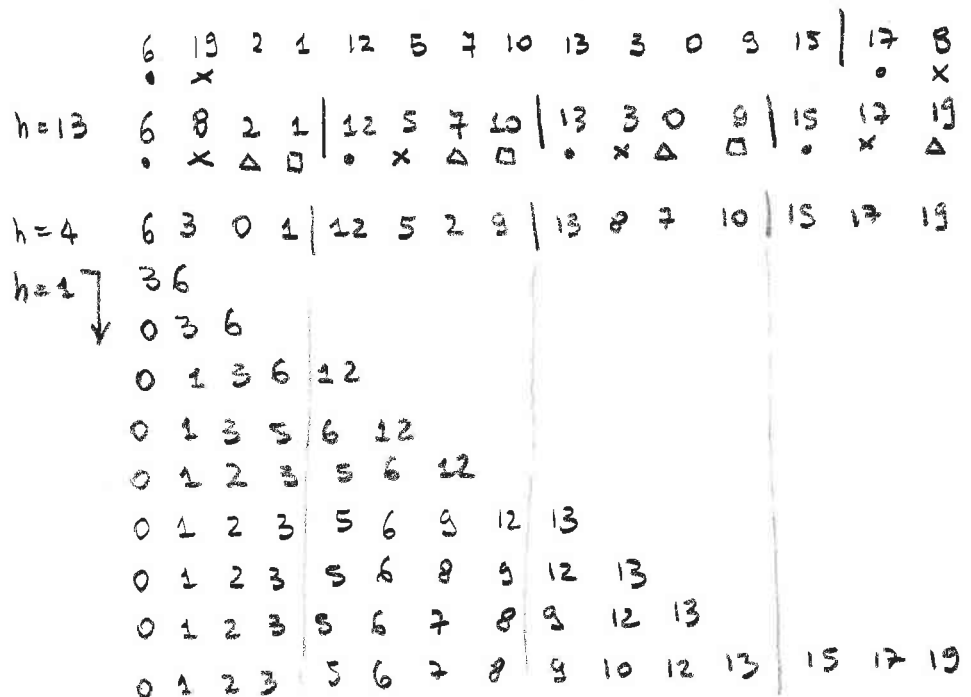 6 19 2 1 12 5 7 10 13 3 0 9 15 | 17 8
• × • ×
h=13 6 8 2 1 | 12 5 7 10 | 13 3 0 9 | 15 17 19
• × △ □ • × △ □ • × △ □ • × △
h=4 6 3 0 1 | 12 5 2 9 | 13 8 7 10 | 15 17 19
h=1 3 6
0 3 6
0 1 3 6 12
0 1 3 5 6 12
0 1 2 3 5 6 12
0 1 2 3 5 6 9 12 13
0 1 2 3 5 6 8 9 12 13
0 1 2 3 5 6 7 8 9 12 13
0 1 2 3 5 6 7 8 9 10 12 13 15 17 19